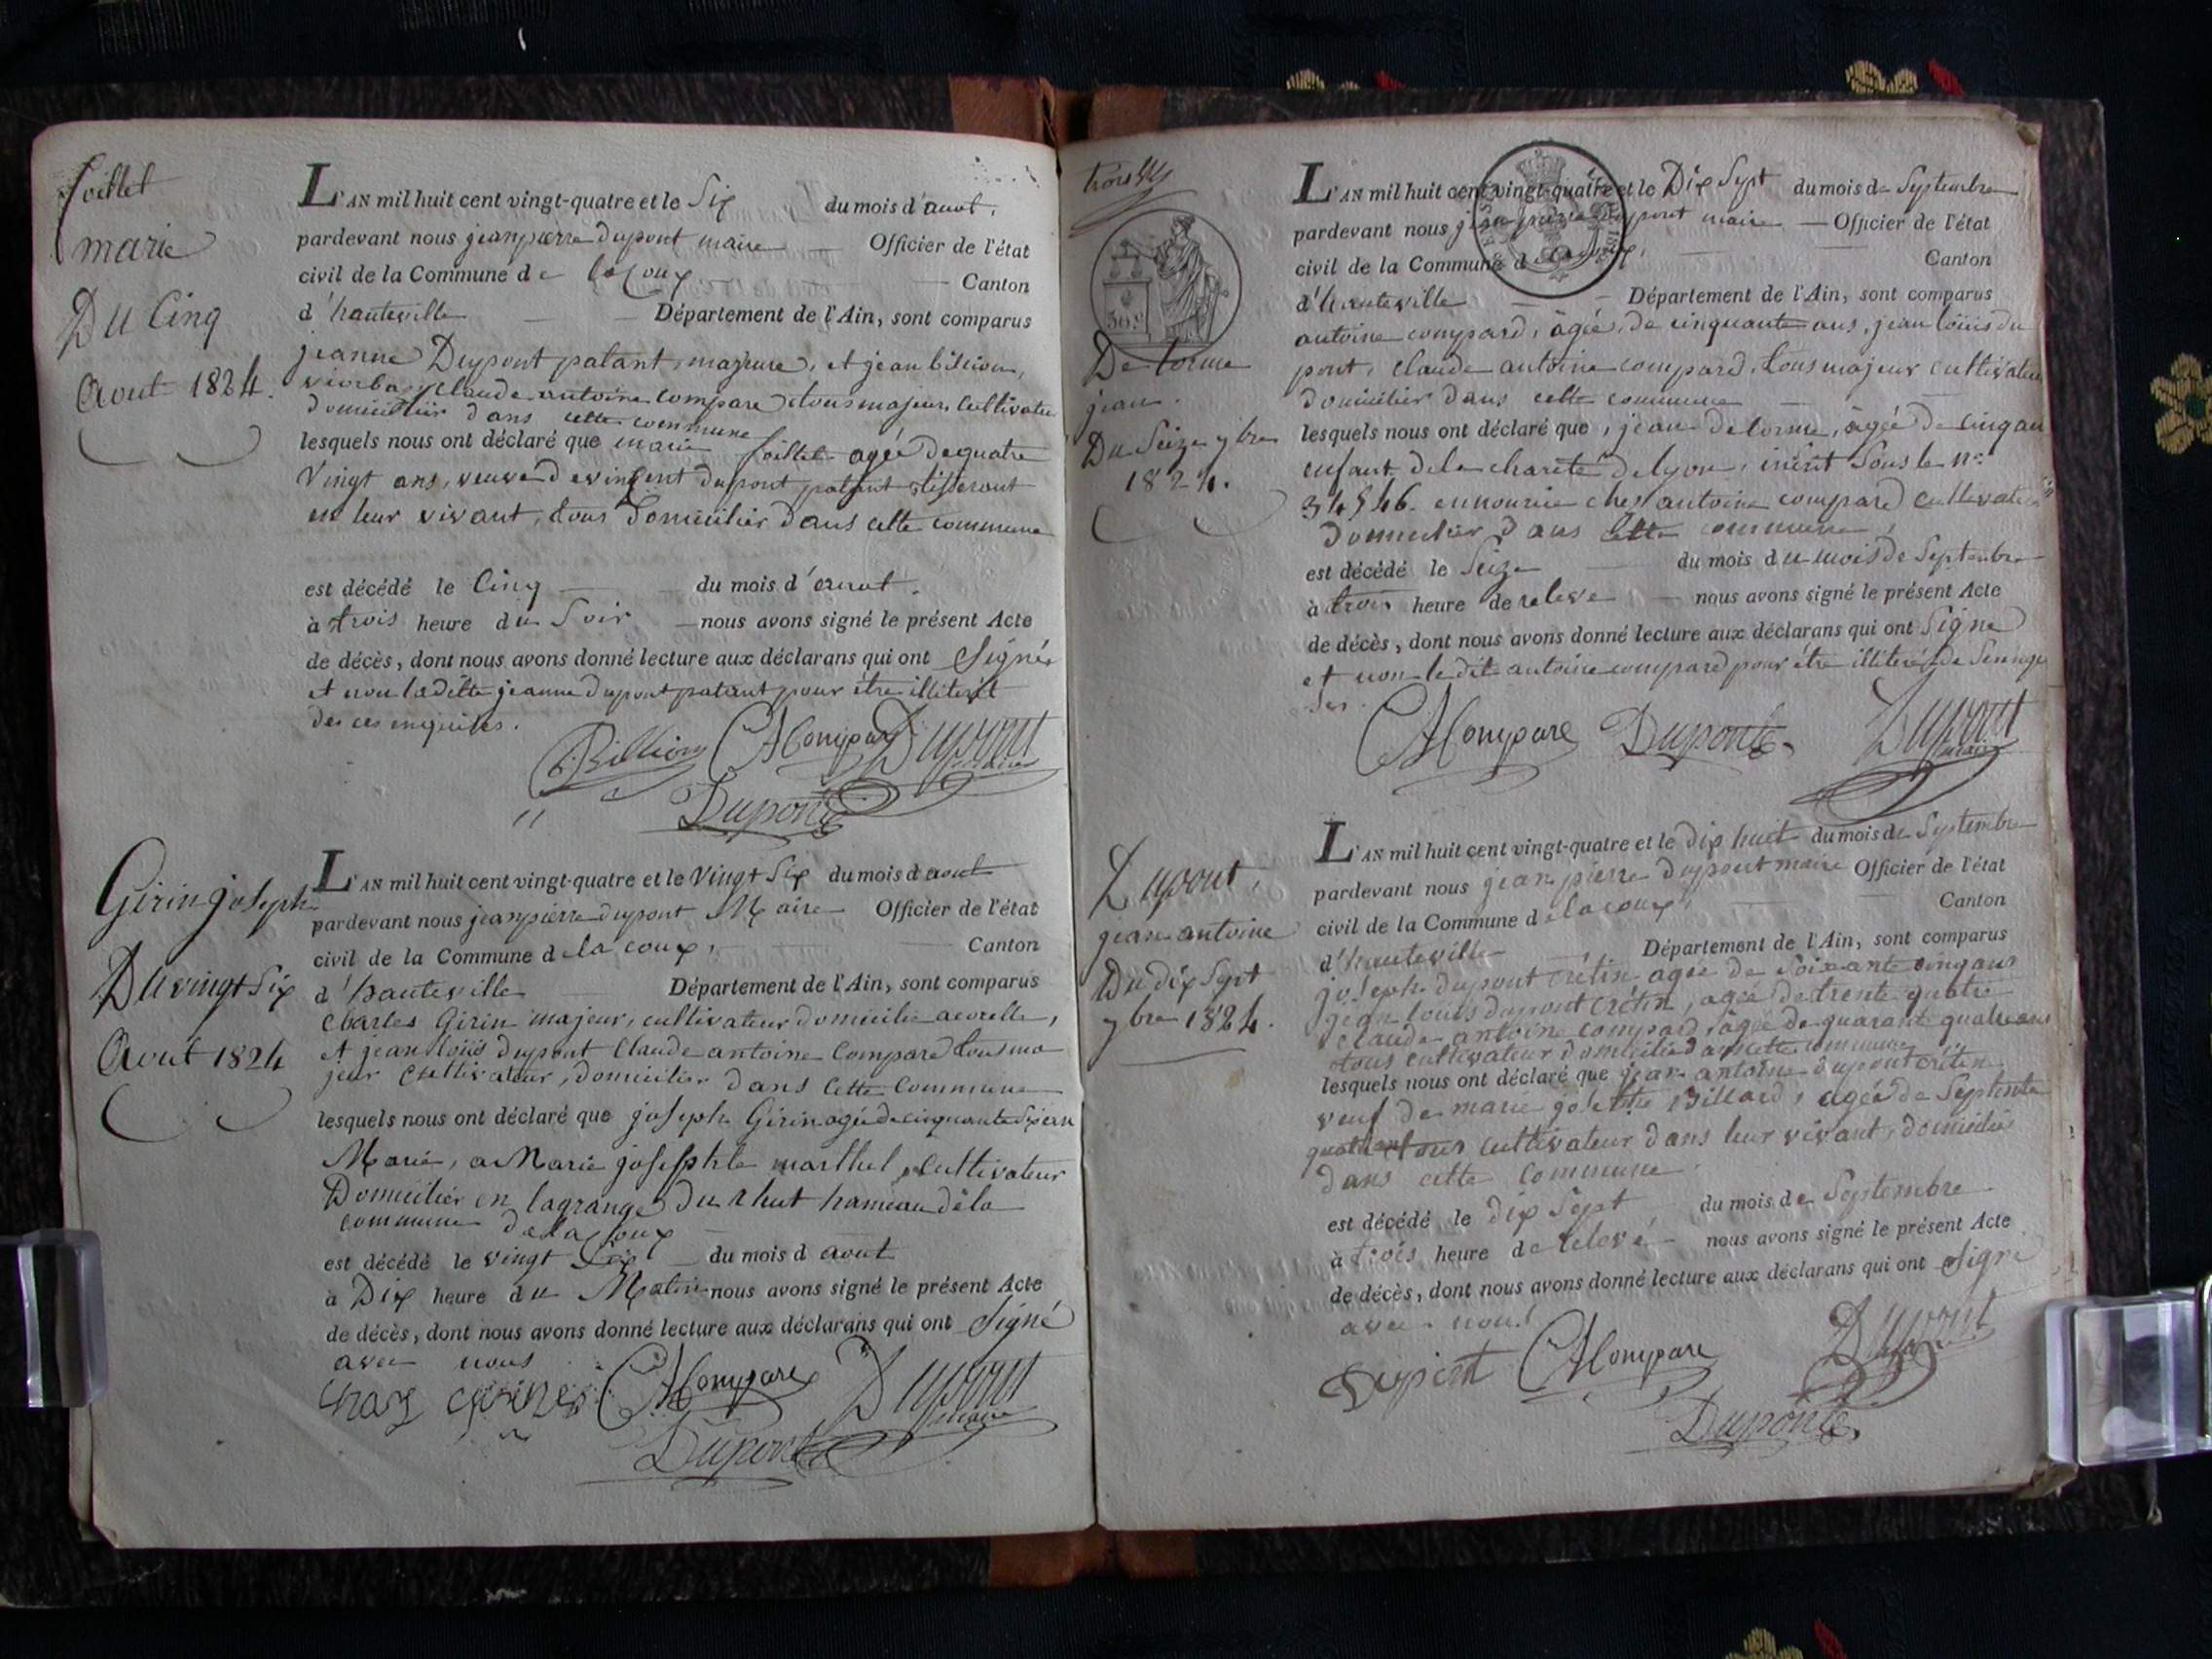 foillet
marie
Du Cinq
Aout 1824.
L'AN mil huit cent vingt-quatre et le Six du mois d'aout,
pardevant nous jeanpierre dupont maire Officier de l'état
civil de la Commune de la Coux Canton
d'hauteville Département de l'Ain, sont comparus
jeanne Dupont patant, majeure, et jean billion,
claude antoine compare tous majeur, cultivateur
domicilier dans cette commune
lesquels nous ont déclaré que marie foillet agée de quatre
Vingt ans, veuve de vincent dupont patant tisserant
en leur vivant, tous Domicilier dans cette commune
est décédé le Cinq du mois d'aout.
à trois heure du Soir nous avons signé le présent Acte
de décès, dont nous avons donné lecture aux déclarans qui ont Signés
et non laditte jeanne dupont patant pour être illiterét
de ces enquises.
Billion CA Compare Dupont maire
Dupont
Girin joseph
Du vingt Six
Aout 1824
L'AN mil huit cent vingt-quatre et le Vingt Six du mois d aout
pardevant nous jeanpierre dupont Maire Officier de l'état
civil de la Commune de la coux, Canton
d'hauteville Département de l'Ain, sont comparus
Charles Girin majeur, cultivateur domicilié acorelle,
et jean loüis dupont Claude antoine Compare tous ma
jeur cultivateur, domicilier dans cette Commune
lesquels nous ont déclaré que joseph Girin agé de cinquante six an
Marié, a Marie josephte marthel, cultivateur
Domicilier en lagrange du hameau de la
commune de la Coux
est décédé le vingt Six du mois d aout
à Dix heure du Matin nous avons signé le présent Acte
de décès, dont nous avons donné lecture aux déclarans qui ont Signé
avec nous
CA Compare Dupont maire
Dupont
trois
De lorme
jean.
Du Seize 7bre
1824.
L'AN mil huit cent vingt-quatre et le Dix Sept du mois de Septembre
pardevant nous jean pierre dupont maire Officier de l'état
civil de la Commune d Canton
d'hauteville Département de l'Ain, sont comparus
antoine compard, âgée, de cinquante ans, jean loüis du
pont, claude antoine compard, tous majeur cultivateur
domicilier dans cette commune
lesquels nous ont déclaré que, jean delorme, âgée de cinq an
enfant de la charité de lyon, inscrit Sous le no.
34546. en nourrice chez antoine compard cultivateur
domicilier dans cette commune,
est décédé le Seize du mois du mois de Septembre
à trois heure de releve nous avons signé le présent Acte
de décès, dont nous avons donné lecture aux déclarans qui ont Signé
et non le dit antoine compard pour être illiteré de
CA Compare Dupont Dupont maire
Dupont,
jean antoine
Du dix Sept
7bre 1824.
L'AN mil huit cent vingt-quatre et le dix huit du mois de Septembre
pardevant nous jean pierre dupont maire Officier de l'état
civil de la Commune de la coux, Canton
d'hauteville Département de l'Ain, sont comparus
joseph dupont crétin agée de Soixante cinq ans
jean louis dupont crétin, agée de trente quatre
claude antoine compard, âgée de quarante quatre ans
tous cultivateur domicilié dans cette commune
lesquels nous ont déclaré que jean antoine dupont crétin
veuf de marie josephte Billard, agée de Septente
quatre tous cultivateur dans leur vivant, domicilié
dans cette commune
est décédé le dix Sept du mois de Septembre
à trois heure de relevé nous avons signé le présent Acte
de décès, dont nous avons donné lecture aux déclarans qui ont Signé
avec nous
dupont CA Compare Dupont
Dupont